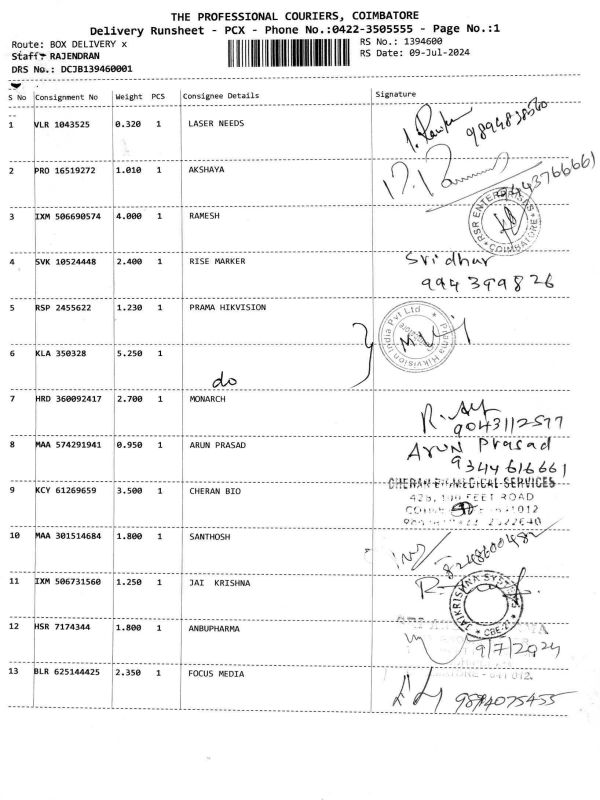 THE PROFESSIONAL COURIERS, COIMBATORE
Delivery Runsheet - PCX - Phone No.:0422-3505555 - Page No.:1
Route: BOX DELIVERY x
RS No.: 1394600
Staff: RAJENDRAN
RS Date: 09-Jul-2024
DRS No.: DCJB139460001
S No Consignment No Weight PCS Consignee Details Signature
1 VLR 1043525 0.320 1 LASER NEEDS
2 PRO 16519272 1.010 1 AKSHAYA
3 IXM 506690574 4.000 1 RAMESH
RSR ENTERPRISAS COIMBATORE
4 SVK 10524448 2.400 1 RISE MARKER Sridhar
994399826
5 RSP 2455622 1.230 1 PRAMA HIKVISION
Prama Hikvision India Pvt Ltd
6 KLA 350328 5.250 1
do
7 HRD 360092417 2.700 1 MONARCH
9043112577
8 MAA 574291941 0.950 1 ARUN PRASAD Arun Prasad
9344616661
9 KCY 61269659 3.500 1 CHERAN BIO
CHERAN BIOMEDICAL SERVICES
FEET ROAD
10 MAA 301514684 1.800 1 SANTHOSH
8248600482
11 IXM 506731560 1.250 1 JAI KRISHNA
JAIKRISHNA CBE-21
12 HSR 7174344 1.800 1 ANBUPHARMA
9/7/2024
13 BLR 625144425 2.350 1 FOCUS MEDIA
9894075455